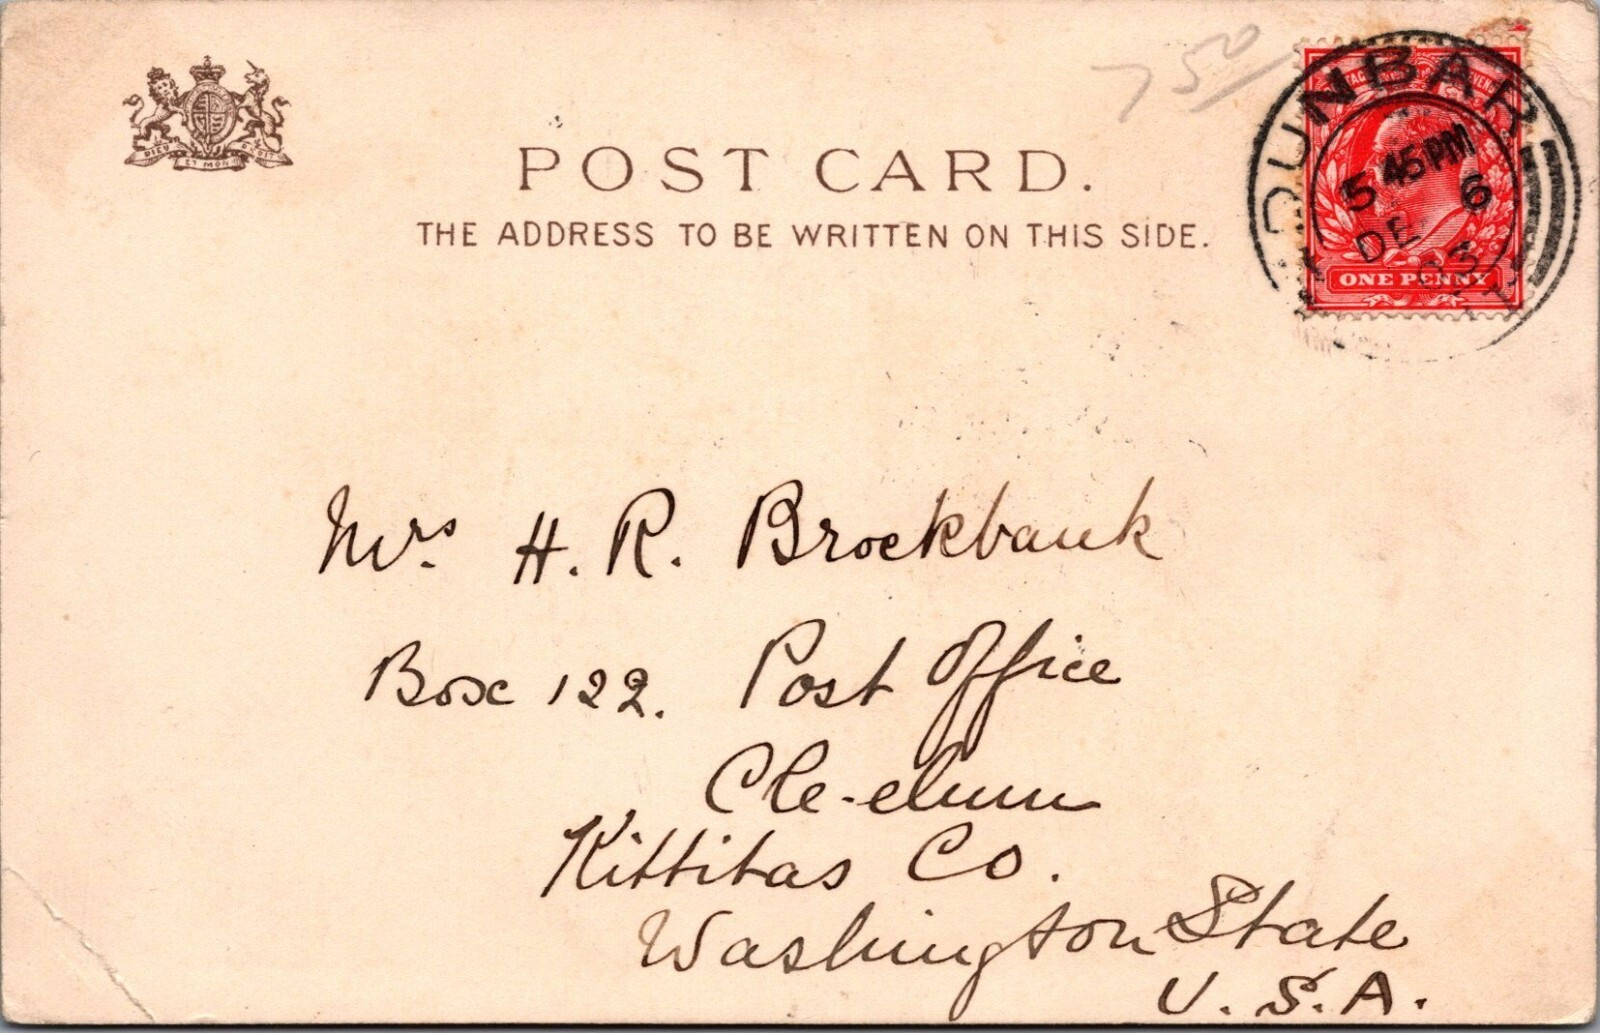 7 50
DUNBAR
5 45 PM
6
DE
03
ONE PENNY
DIEU ET MON DROIT
POST CARD.
THE ADDRESS TO BE WRITTEN ON THIS SIDE.
Mrs. H. R. Brockbank
Box 122. Post Office
Cle-elum
Kittitas Co.
Washington State
U. S. A.